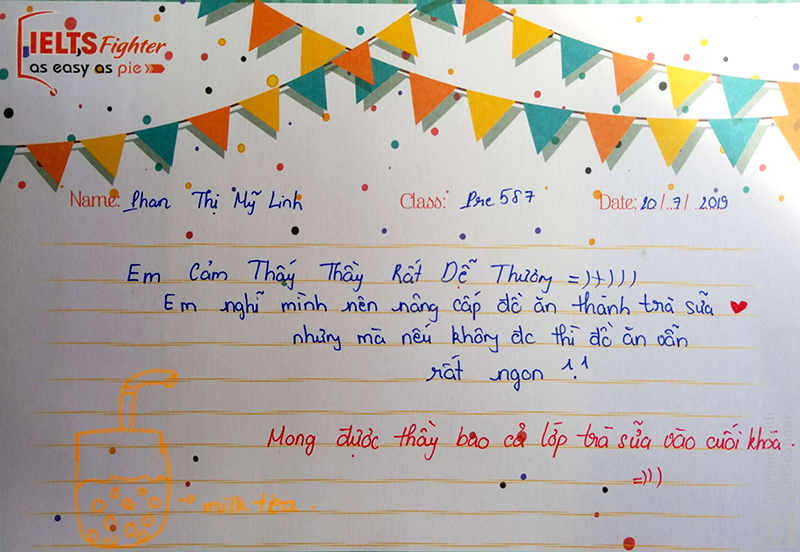 IELTS Fighter
as easy as pie
Name: Phan Thị Mỹ Linh Class: Pre 587 Date: 20/7/2019
Em Cảm Thấy Thầy Rất Dễ Thương =))))
Em nghĩ mình nên nâng cấp đồ ăn thành trà sữa
nhưng mà nếu không đc thì đồ ăn vẫn
rất ngon !!
Mong được thầy bao cả lớp trà sữa vào cuối khoá.
=)))
→ milk tea.